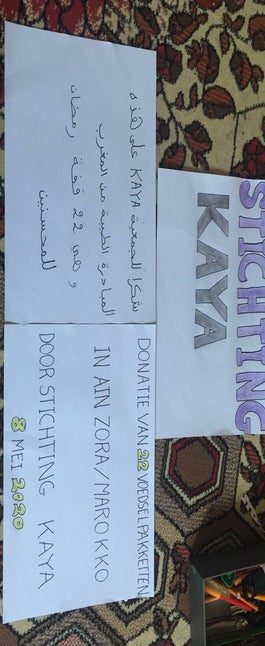 STICHTING
KAYA
شكرا لجمعية KAYA على هذه
المبادرة الطيبة من المغرب
و هي 22 قفة رمضان
للمحسنين
DONATIE VAN 22 VOEDSELPAKKETTEN
IN AIN ZORA/MAROKKO
DOOR STICHTING KAYA
8 MEI 2020